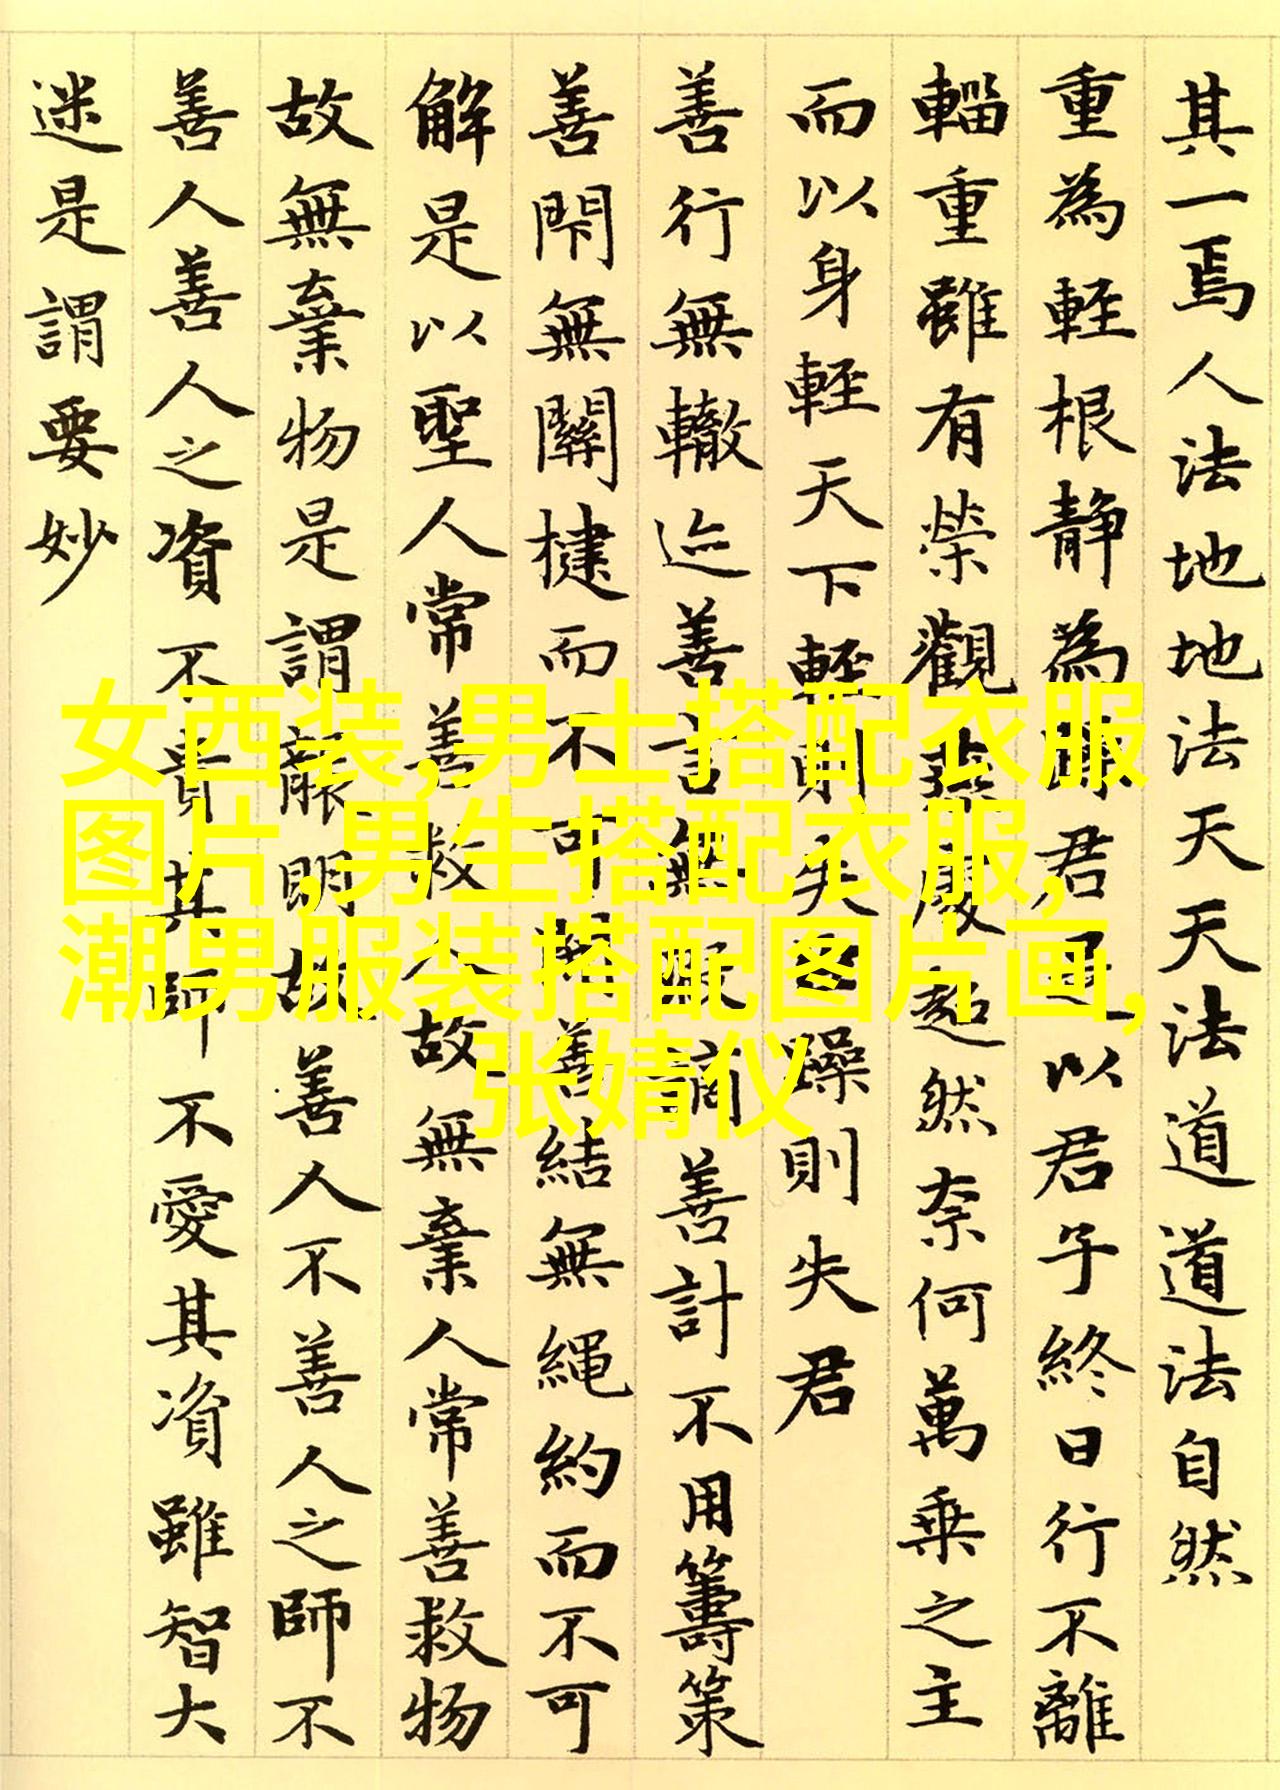 其一焉人法地地法天天法道道法自然
重為輕根静為躁君是以君子終日行不離
輜重雖有榮觀燕處超然奈何萬乗之主
而以身輕天下輕則失臣躁則失君
善行無轍迹善言無瑕謫善計不用籌策
善閇無關揵而不可開善結無繩約而不可
解是以聖人常善救人故無棄人常善救物
故無棄物是謂襲明故善人不善人之師不
善人善人之資不貴其師不愛其資雖智大
迷是謂要妙
女西装,男士搭配衣服
图片,男生搭配衣服,
潮男服装搭配图片画,
张婧仪